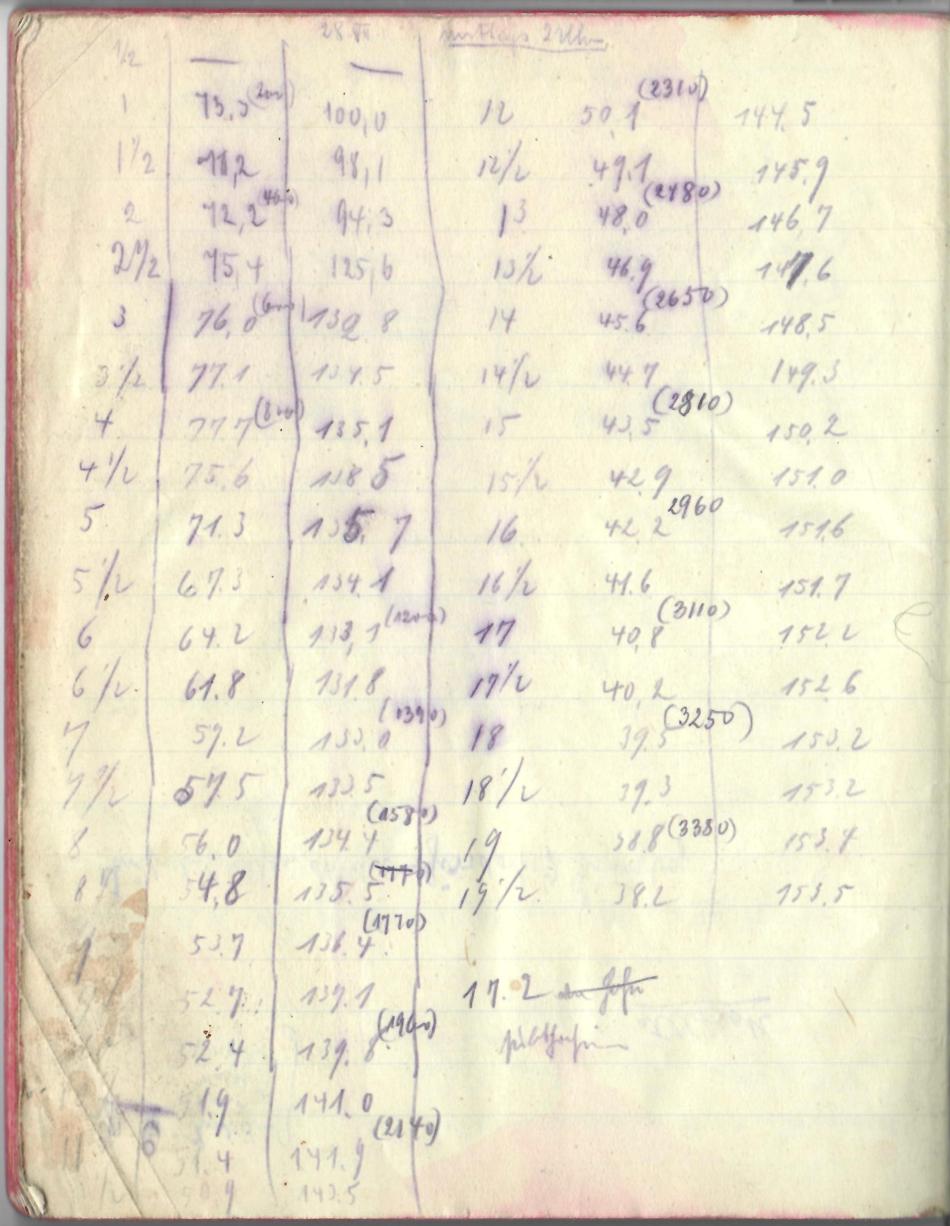 28 VII mittags 2 Uhr
1/2 — —
1 73,5 (200) 100,0 12 50,1 (2310) 144.5
1 1/2 71,2 98,1 12 1/2 49,1 145,9
2 72,2 (400) 94,3 13 48,0 (2480) 146,7
2 1/2 75,4 125,6 13 1/2 46,9 147,6
3 76,0 (600) 132 8 14 45.6 (2650) 148,5
3 1/2 77.1 134.5 14 1/2 44.7 149.3
4 77.7 (800) 135,1 15 43,5 (2810) 150,2
4 1/2 75.6 138 5 15 1/2 42.9 151.0
5 71.3 135,7 16 42.2 2960 151.6
5 1/2 67.3 134.1 16 1/2 41.6 151.7
6 64.2 133,1 (1200) 17 40,8 (3110) 152.2
6 1/2 61.8 131.8 17 1/2 40,2 152.6
7 59.2 133,0 (1390) 18 39,5 (3250) 153.2
7 1/2 57.5 133.5 18 1/2 39.3 153.2
8 56.0 134.4 (1580) 19 38.8 (3380) 153.4
8 1/2 54,8 135.5 (1770) 19 1/2 38.2 153.5
53.7 136.4 (1770)
52.7 137.1 17.2
52.4 139.8 (1960)
51.9 141.0
11 51.4 141.9 (2140)
1/2 50.9 143.5